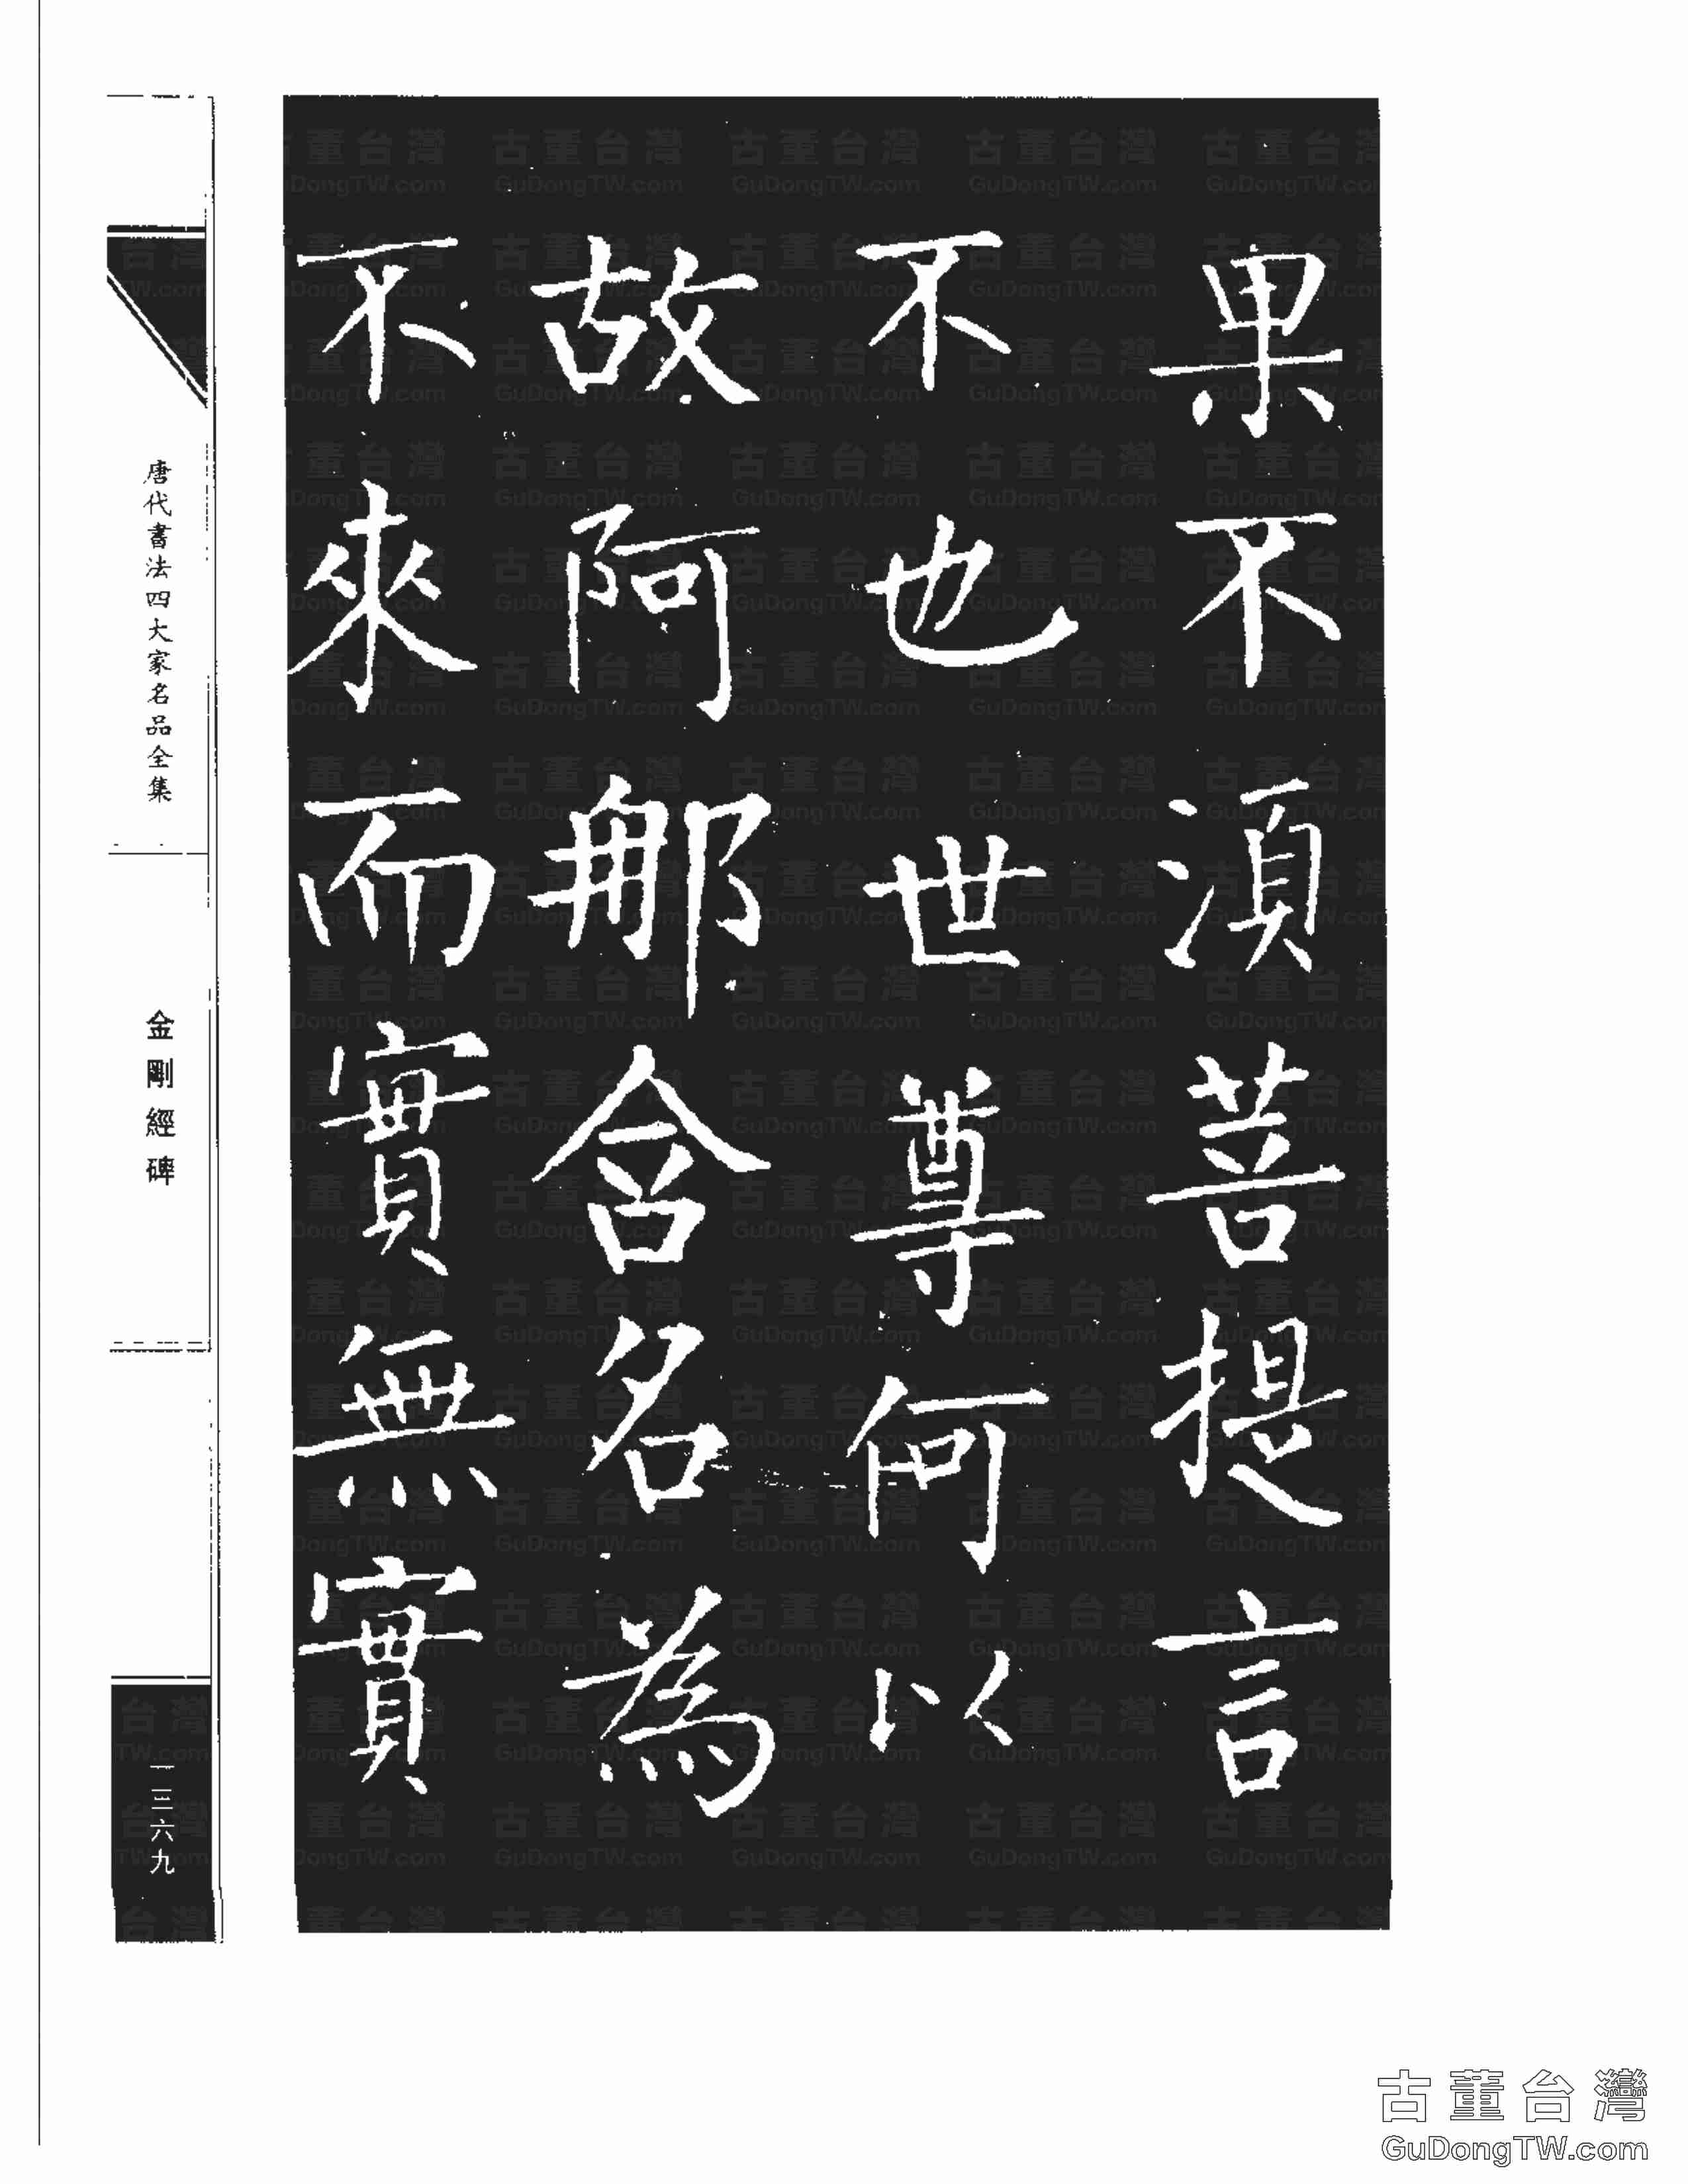 果不湏菩提言
不也世尊何以
故阿那含名為
不來而實無實
唐代書法四大家名品全集
金剛經碑
一三六九
古董台灣
GuDongTW.com